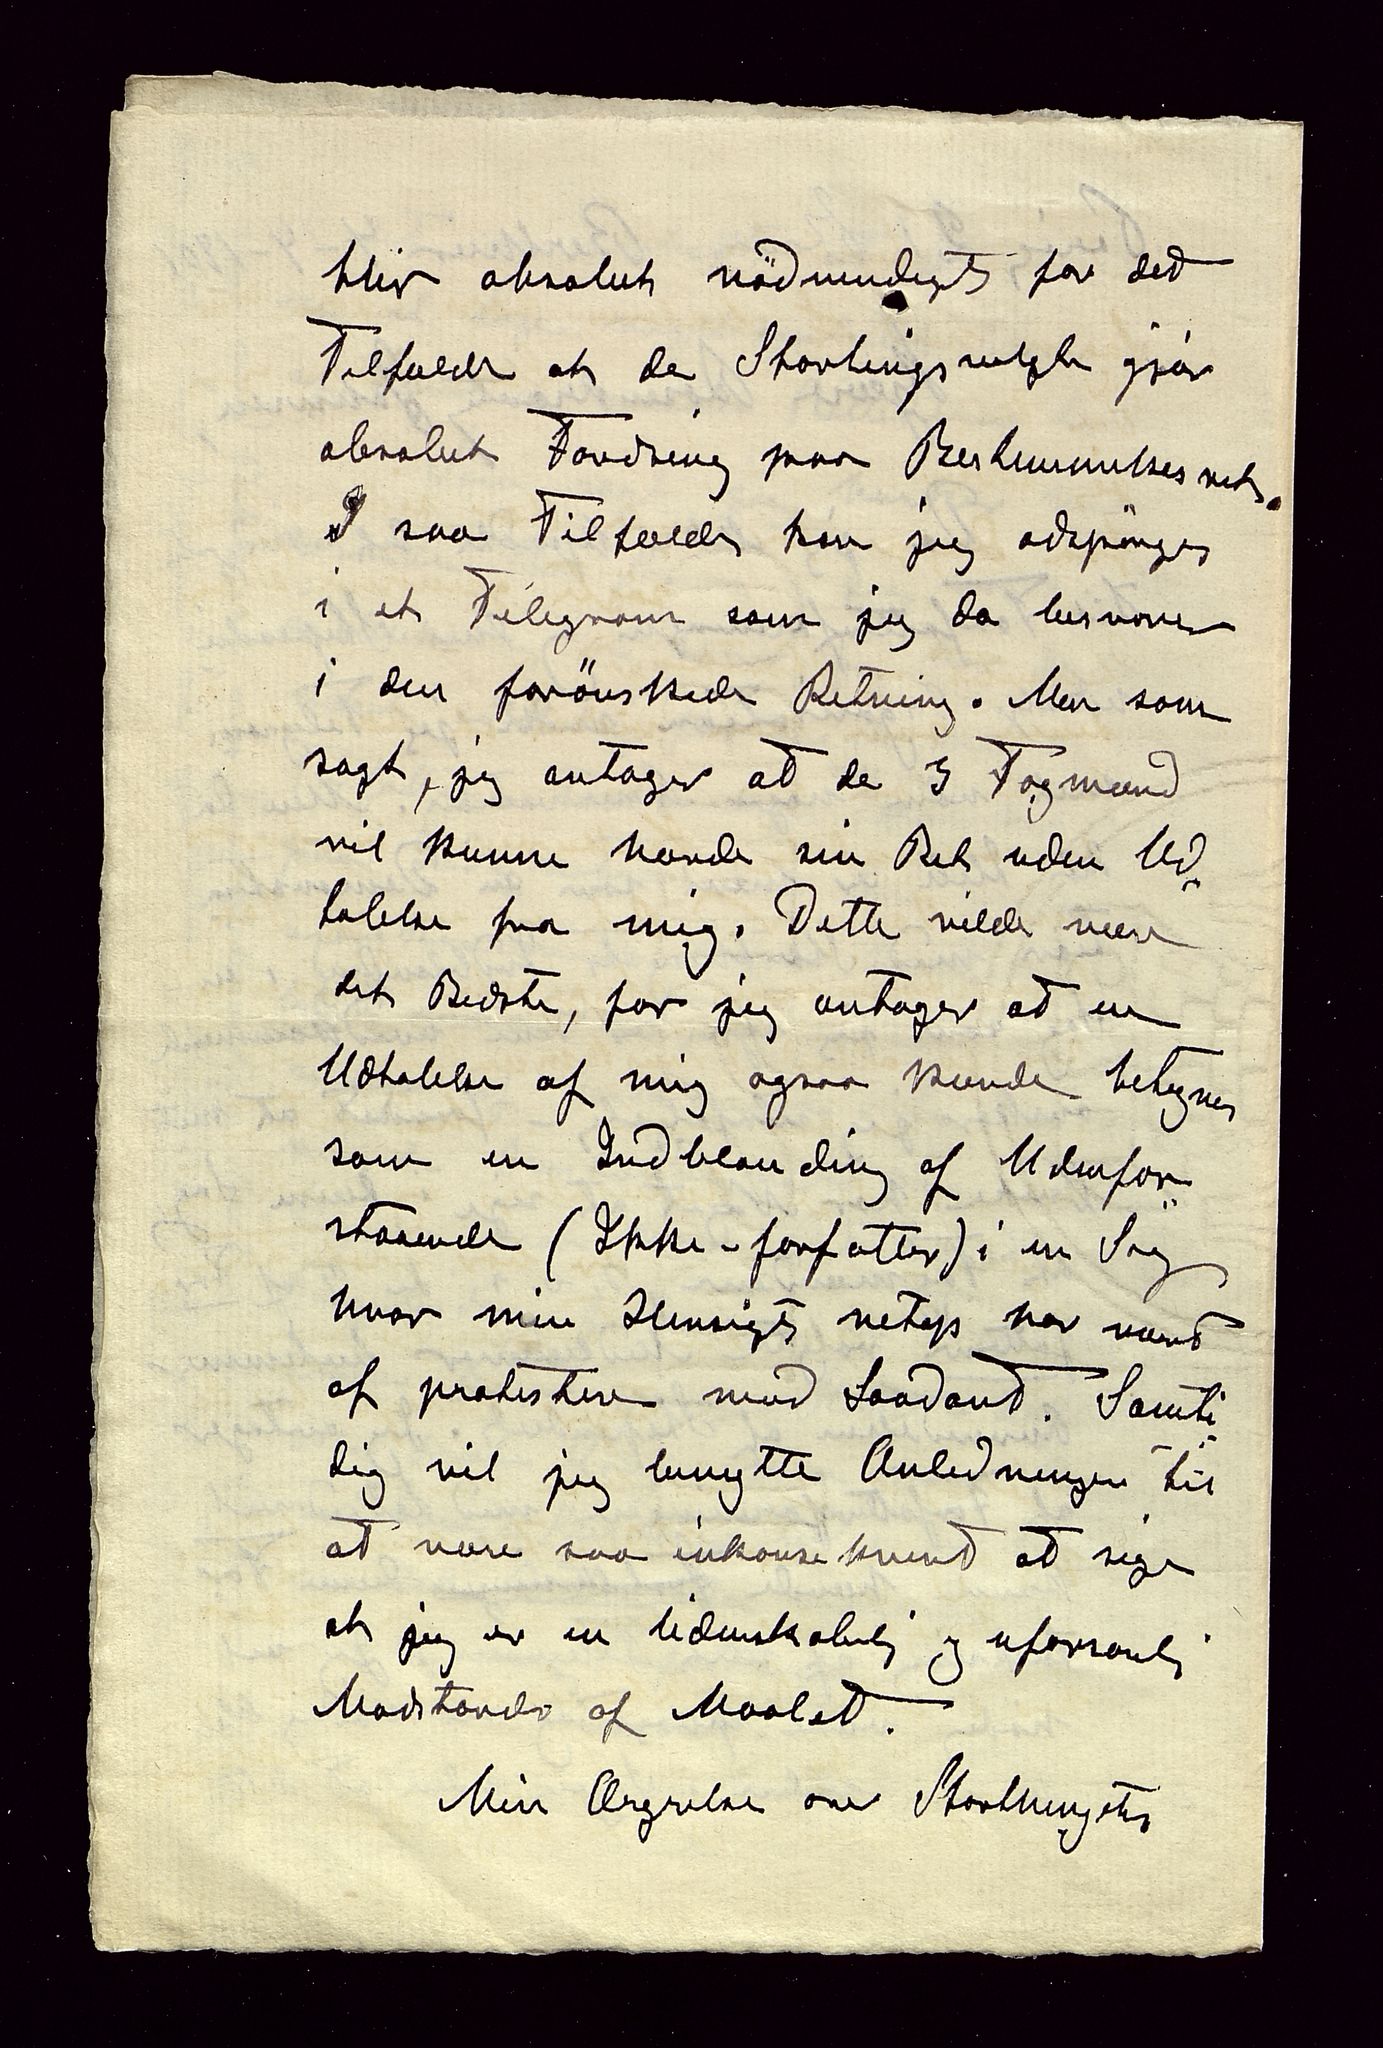 blir absolut nödvendigt, for det
Tilfælde at de Stortingsvalgte gjør
absolut Fordring paa Bestemmelsesret.
I saa Tilfælde kan jeg adspörges
i et Telegram som jeg da besvarer
i den forönskede Retning. Men som
sagt, jeg antager at de 3 Fagmænd
vil kunne hævde sin Ret uden Ud-
talelse fra mig. Dette vilde være
det Bedste, for jeg antager at en
Udtalelse af mig ogsaa kunde betegnes
som en Indblanding af Udenfor-
staaende (Ikke-forfatter) i en Sag
hvor min Hensigt netop har været
at protestere mod Saadant. Samti-
dig vil jeg benytte Anledningen til
at være saa inkonsekvent at sige
at jeg er en lidenskabelig og uforsonlig
Modstander af Maalet.
Min Ærgrelse over Storthingets